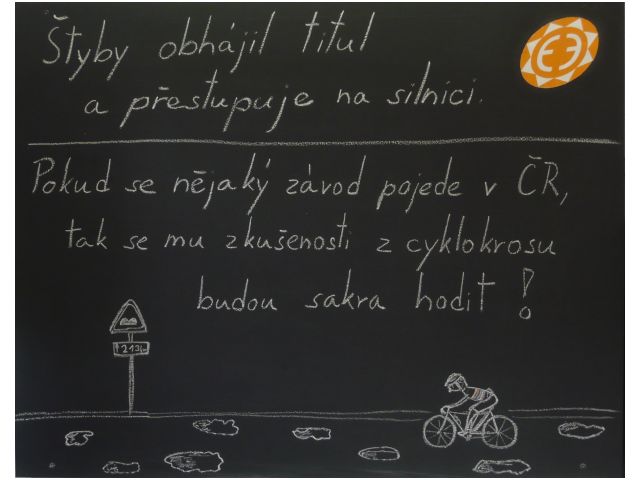 Štyby obhájil titul
a přestupuje na silnici.
Pokud se nějaký závod pojede v ČR,
tak se mu zkušenosti z cyklokrosu
budou sakra hodit!